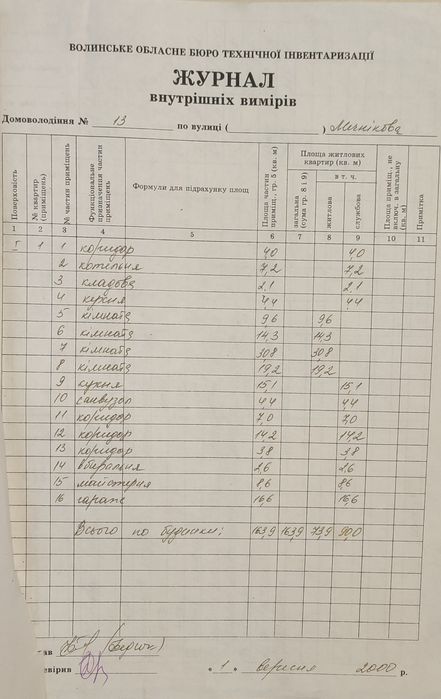 ВОЛИНСЬКЕ ОБЛАСНЕ БЮРО ТЕХНІЧНОЇ ІНВЕНТАРИЗАЦІЇ
ЖУРНАЛ
внутрішніх вимірів
Домоволодіння № 13 по вулиці ( ) Мечнікова
Поверховість № квартир (приміщень) № частин приміщень Функціональне призначення частин приміщень Формули для підрахунку площ Площа частин приміщ., гр. 5 (кв. м) Площа житлових квартир (кв. м) загальна (сума гр. 8 і 9) в т. ч. житлова службова Площа приміщ., не включ. в загальну (кв. м) Примітка
1 2 3 4 5 6 7 8 9 10 11
I 1 1 коридор 4,0 4,0
2 котельня 7,2 7,2
3 кладова 2,1 2,1
4 кухня 4,4 4,4
5 кімната 9,6 9,6
6 кімната 14,3 14,3
7 кімната 30,8 30,8
8 кімната 19,2 19,2
9 кухня 15,1 15,1
10 санвузол 4,4 4,4
11 коридор 7,0 7,0
12 коридор 14,2 14,2
13 коридор 3,8 3,8
14 вбиральня 2,6 2,6
15 майстерня 8,6 8,6
16 гараж 16,6 16,6
Всього по будинку: 163,9 163,9 73,9 90,0
ав
евірив « 1 » вересня 2000 р.